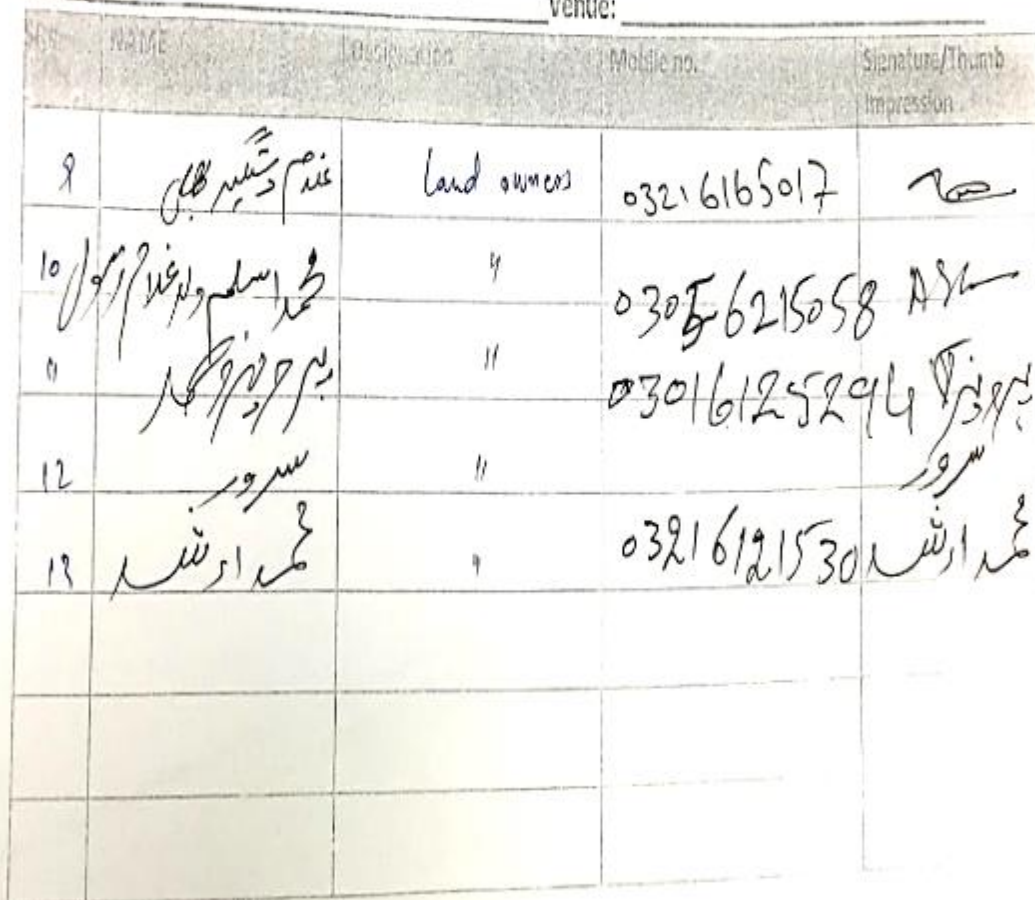 Venue:
Sr# NAME Designation Mobile no. Signature/Thumb
Impression
9 غلام دستگیر Land owners 03216165017
10 محمد اسلم ولد غلام رسول " 03056215058 ASL
11 " 03016125294
12 سرور " سرور
13 محمد ارشد " 03216121530 محمد ارشد